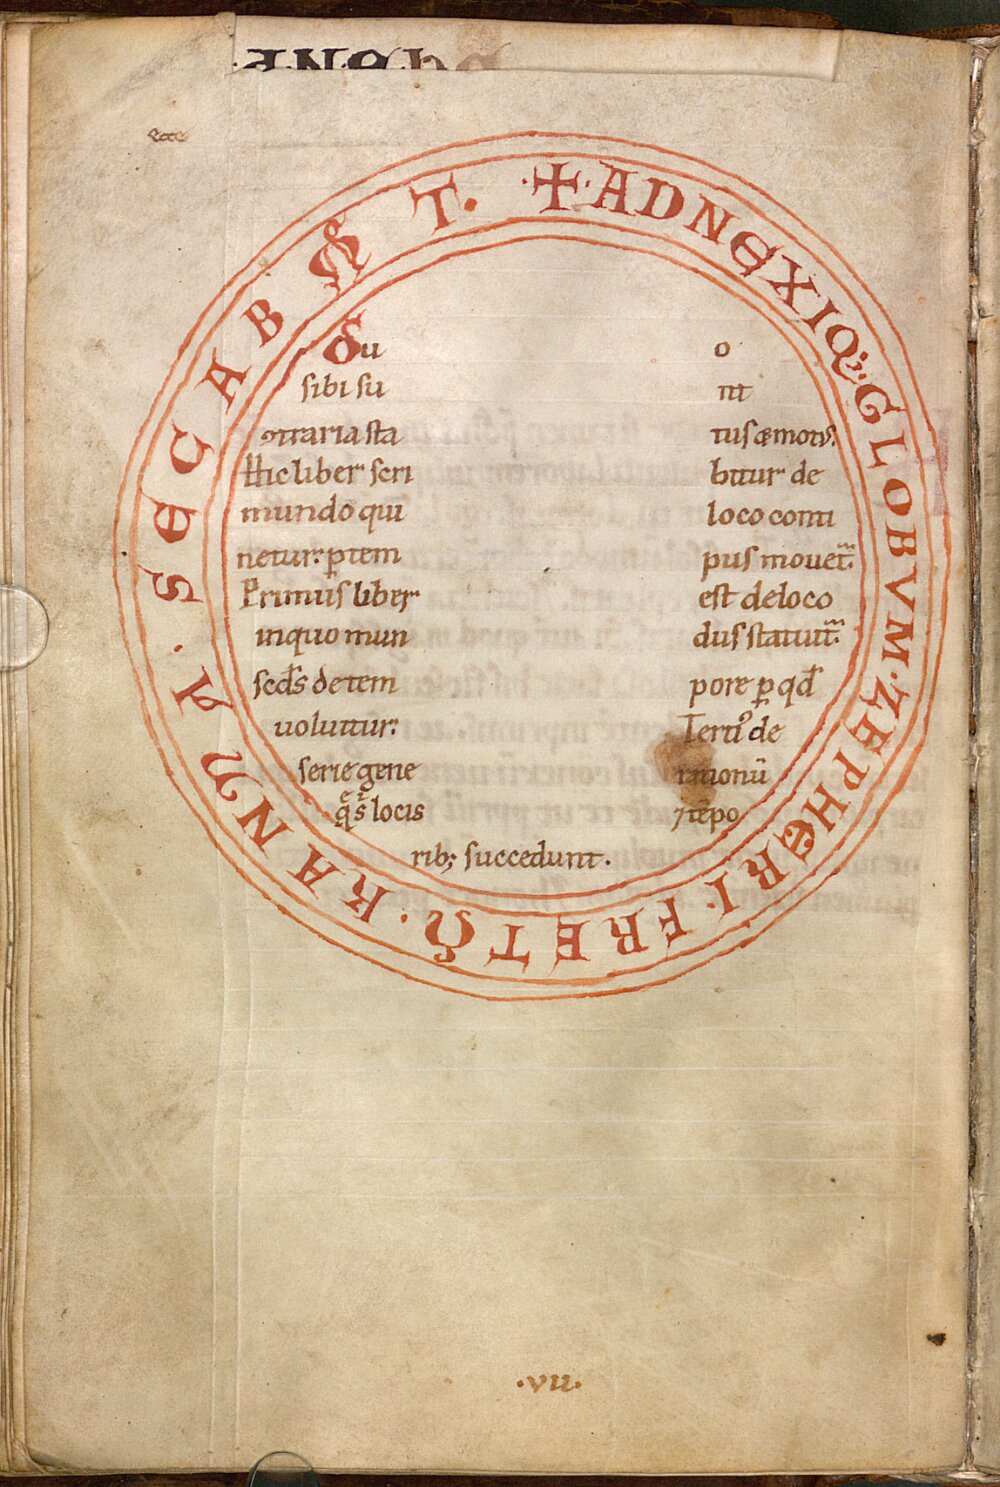 ✠ ADNEXIQ; GLOBVM · ZEPHERI · FRETŌ · KANNA · SECABAN T ·
Su o
sibi su nt
ꝯtraria sta tus æ motꝰ.
Hic liber scri bitur de
mundo qui loco conti
netur. ꝑ tem pus mouet̃.
Primus liber est de loco
in quo mun dus statuit̃.
scd̄s de tem pore ꝑ qd̄
uoluitur: Tertiꝰ de
serie gene rationū
qs̄ locis ⁊ tēpo
rib; succedunt.
·VII·